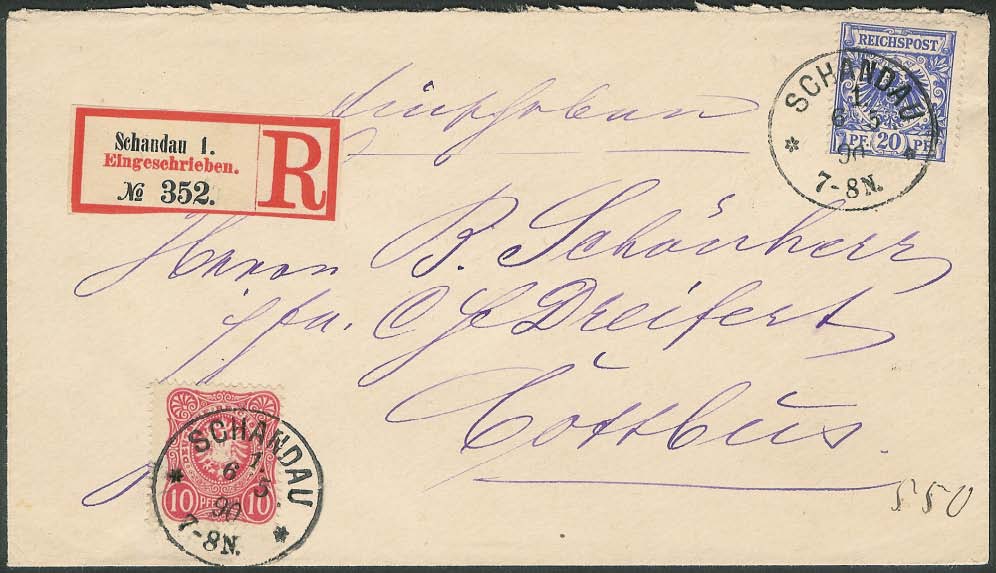 REICHSPOST
PF 20 PF
SCHANDAU
1.
6 5
90
7-8N.
Schandau 1.
Eingeschrieben.
R
№ 352.
Einschreiben
Herrn R. Schönherr
C G Dreifert
Cottbus.
SCHANDAU
1.
6 5
90
7-8N.
10 PFENNIG 10
550